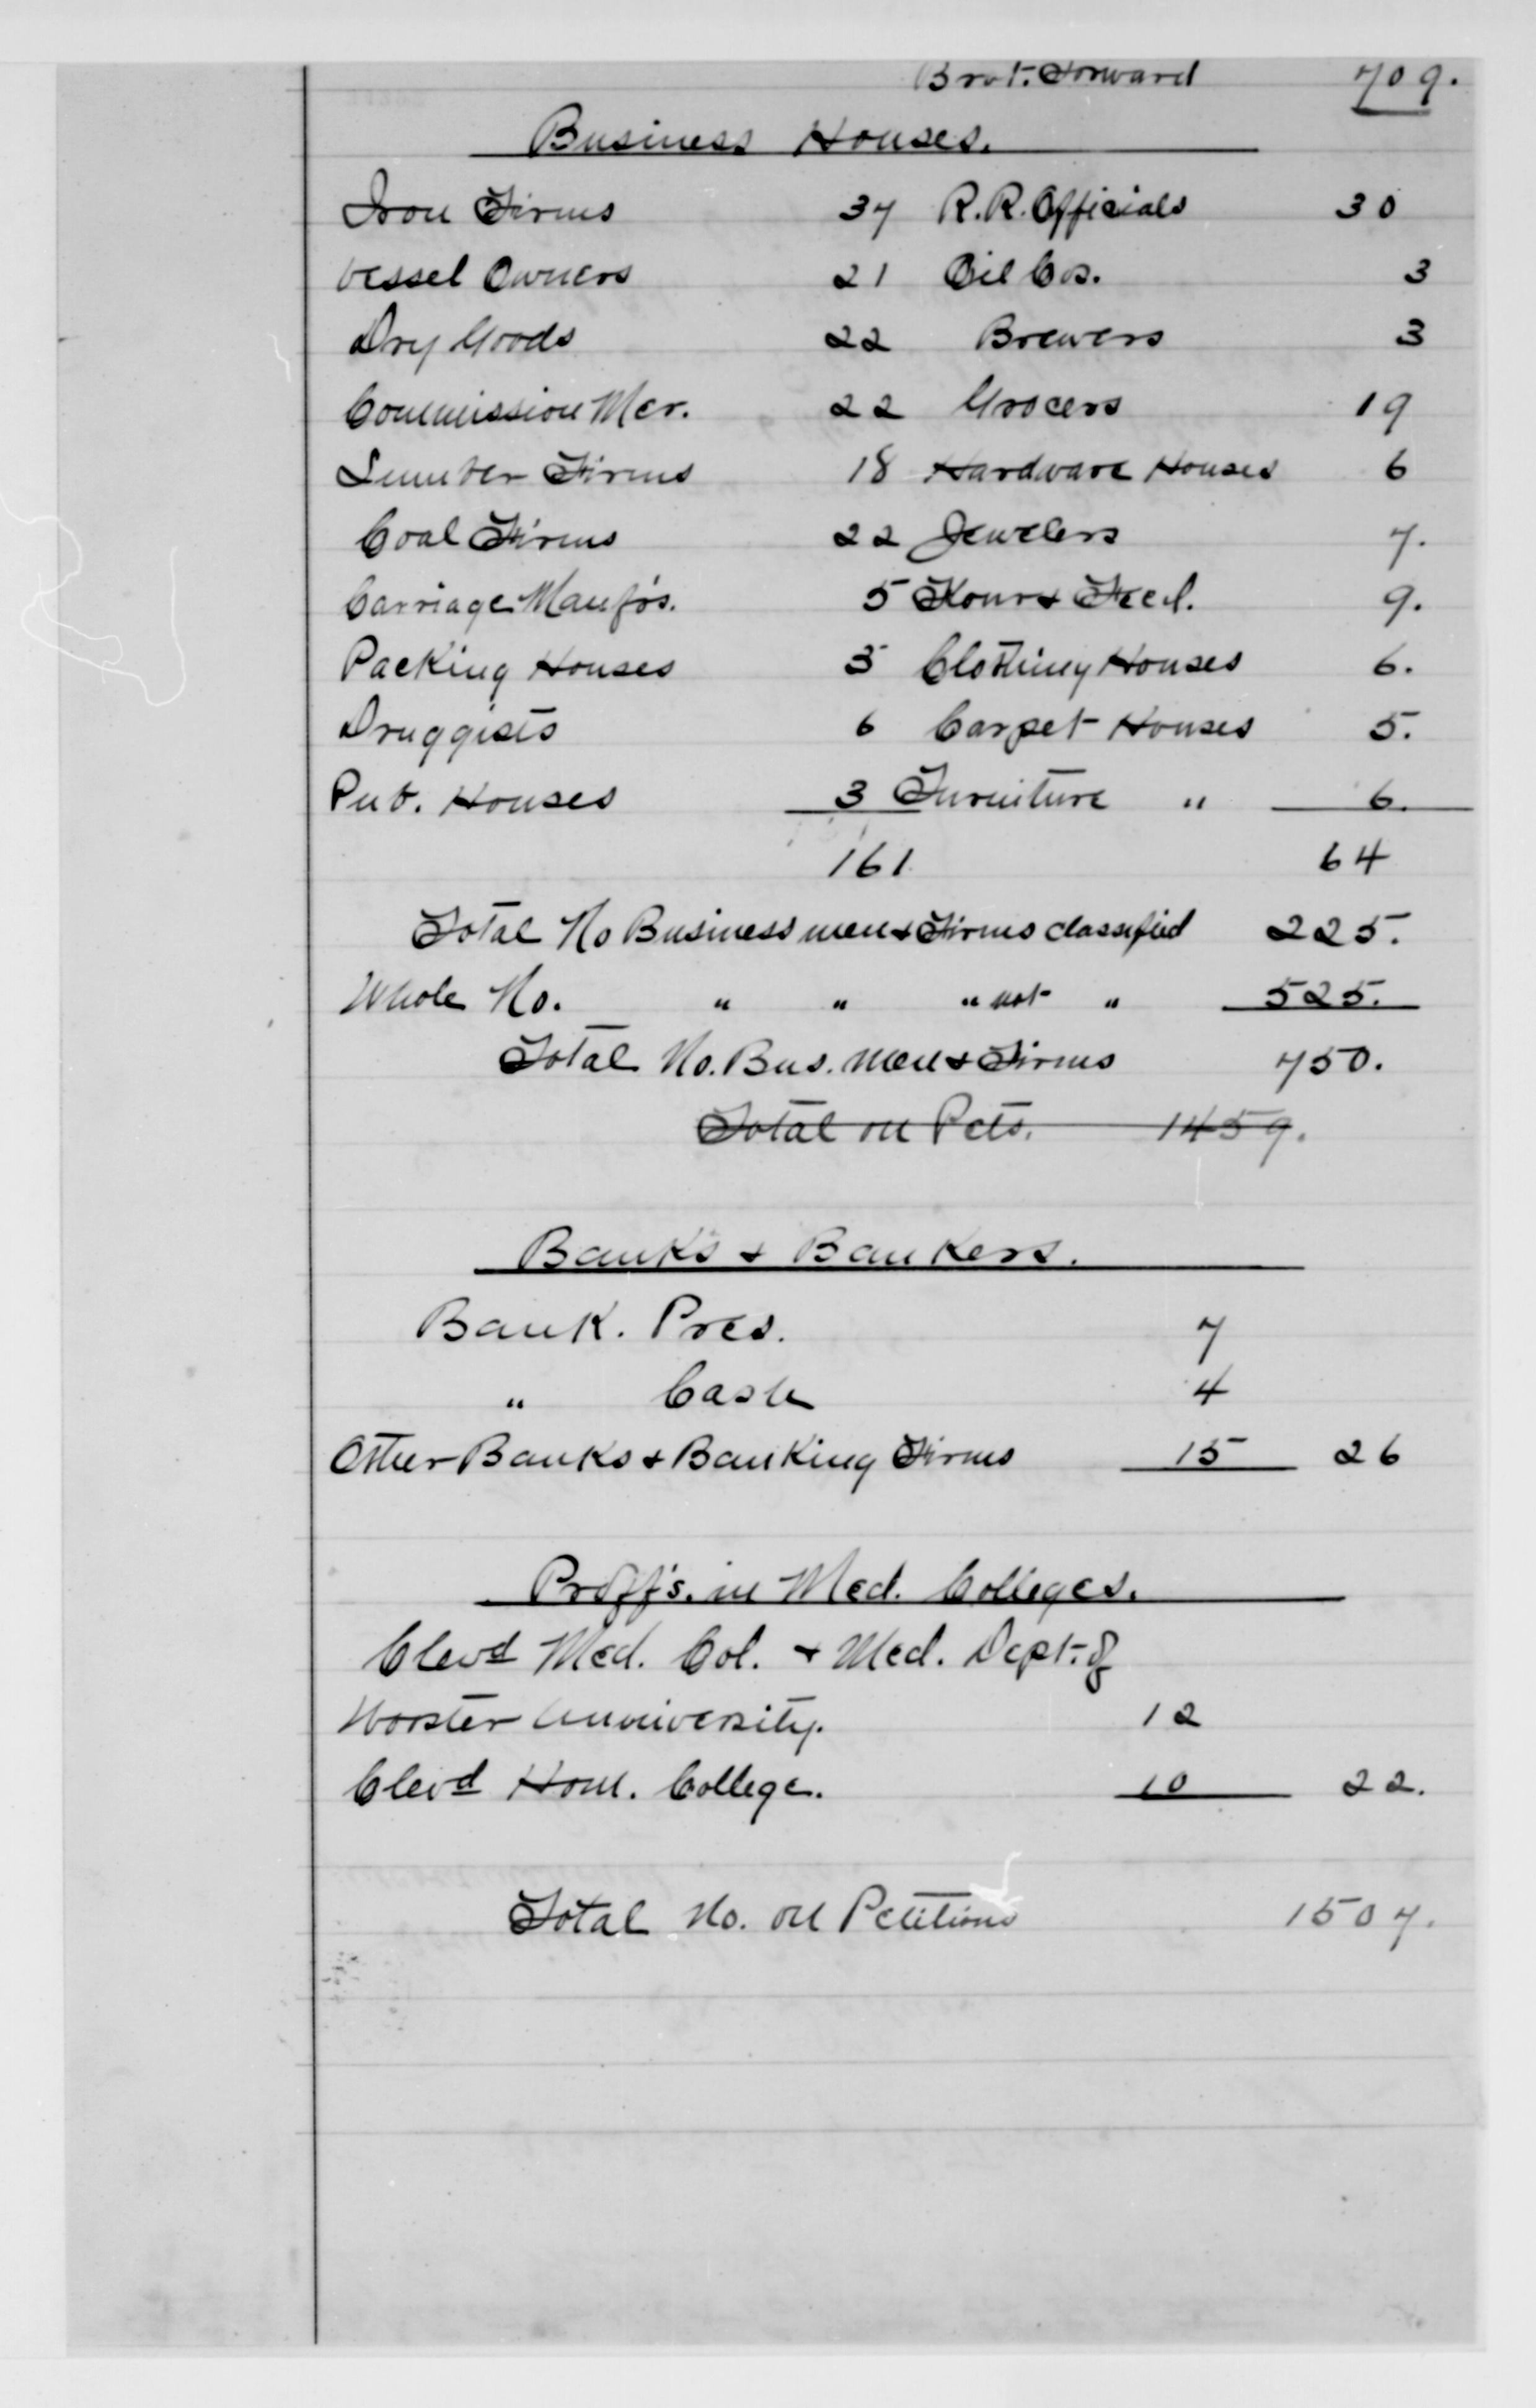 Brot. Forward 709.
Business Houses.
Iron Firms 37 R.R. Officials 30
Vessel Owners 21 Oil Cos. 3
Dry Goods 22 Brewers 3
Commission Mer. 22 Grocers 19
Lumber Firms 18 Hardware Houses 6
Coal Firms 22 Jewelers 7.
Carriage Manuf'os. 5 Flour & Feed. 9.
Packing Houses 5 Clothing Houses 6.
Druggists 6 Carpet Houses 5.
Pub. Houses 3 Furniture " 6.
161 64
Total No Business men & Firms classified 225.
Whole No. " " " not " 525.
Total No. Bus. Men & Firms 750.
Total on Pets. 1459.
Banks & Bankers.
Bank. Pres. 7
" Cash 4
Other Banks & Banking Firms 15 26
Proff's. in Med. Colleges.
Clevd Med. Col. & Med. Dept. of
Worster Unniversity. 12
Clevd Hom. College. 10 22.
Total No. on Petitions 1507.